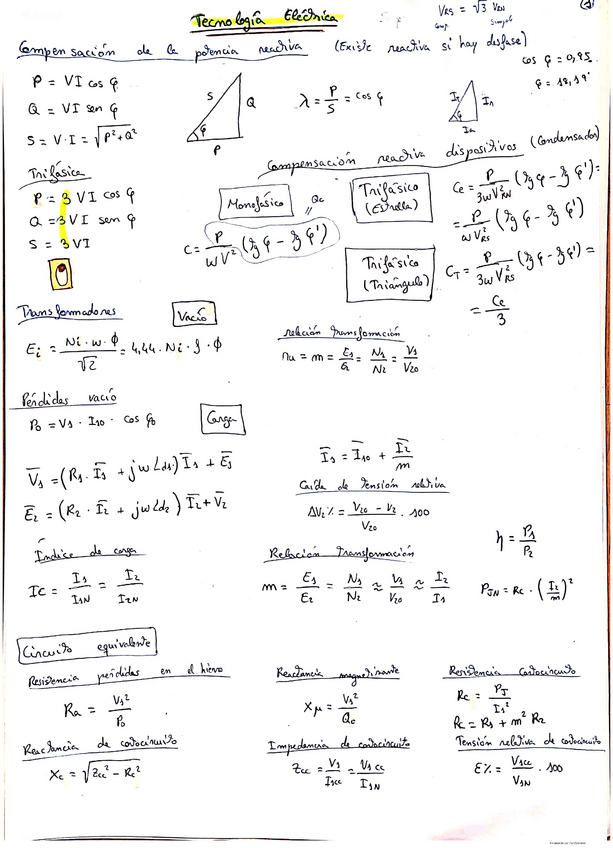 Tecnología Eléctrica
V_RS = √3 V_RN
Compensación de la potencia reactiva (Existe reactiva si hay desfase)
cos φ = 0,95
φ = 18,19°
P = VI cos φ
Q = VI sen φ
S = V·I = √P²+Q²
S Q φ P
λ = P/S = cos φ
Trifásica
P = 3 VI cos φ
Q = 3 VI sen φ
S = 3 VI
Compensación reactiva dispositivos (Condensador)
Monofásico
Qc
C = P/ωV² (tg φ - tg φ')
Trifásico (Estrella)
Ce = P/3ωV²_RN (tg φ - tg φ') =
= P/ωV²_RS (tg φ - tg φ')
Trifásico (Triángulo)
C_T = P/3ωV²_RS (tg φ - tg φ') =
= Ce/3
Transformadores
Vacío
Ei = Ni·ω·ϕ/√2 = 4,44·Ni·f·ϕ
relación transformación
Pérdidas vacío
P0 = V1·I10·cos φ0
Carga
V̄1 = (R1·Ī1 + jωLd1)Ī1 + Ē1
Ē2 = (R2·Ī2 + jωLd2)Ī2 + V̄2
Ī1 = Ī10 + Ī2/m
Caída de tensión relativa
ΔV2% = V20 - V2/V20 · 100
η = P1/P2
Índice de carga
Ic = I1/I1N = I2/I2N
Relación transformación
m = E1/E2 = N1/N2 ≈ V1/V20 ≈ I2/I1
PJN = Rc·(I2/m)²
Circuito equivalente
Resistencia pérdidas en el hierro
Ra = V1²/P0
Reactancia magnetizante
Xμ = V1²/Q0
Resistencia cortocircuito
Rc = PJ/I1²
Rc = R1 + m² R2
Reactancia de cortocircuito
Xc = √Zcc² - Rc²
Impedancia de cortocircuito
Zcc = V1/I1cc = V1cc/I1N
Tensión relativa de cortocircuito
ε% = V1cc/V1N · 100